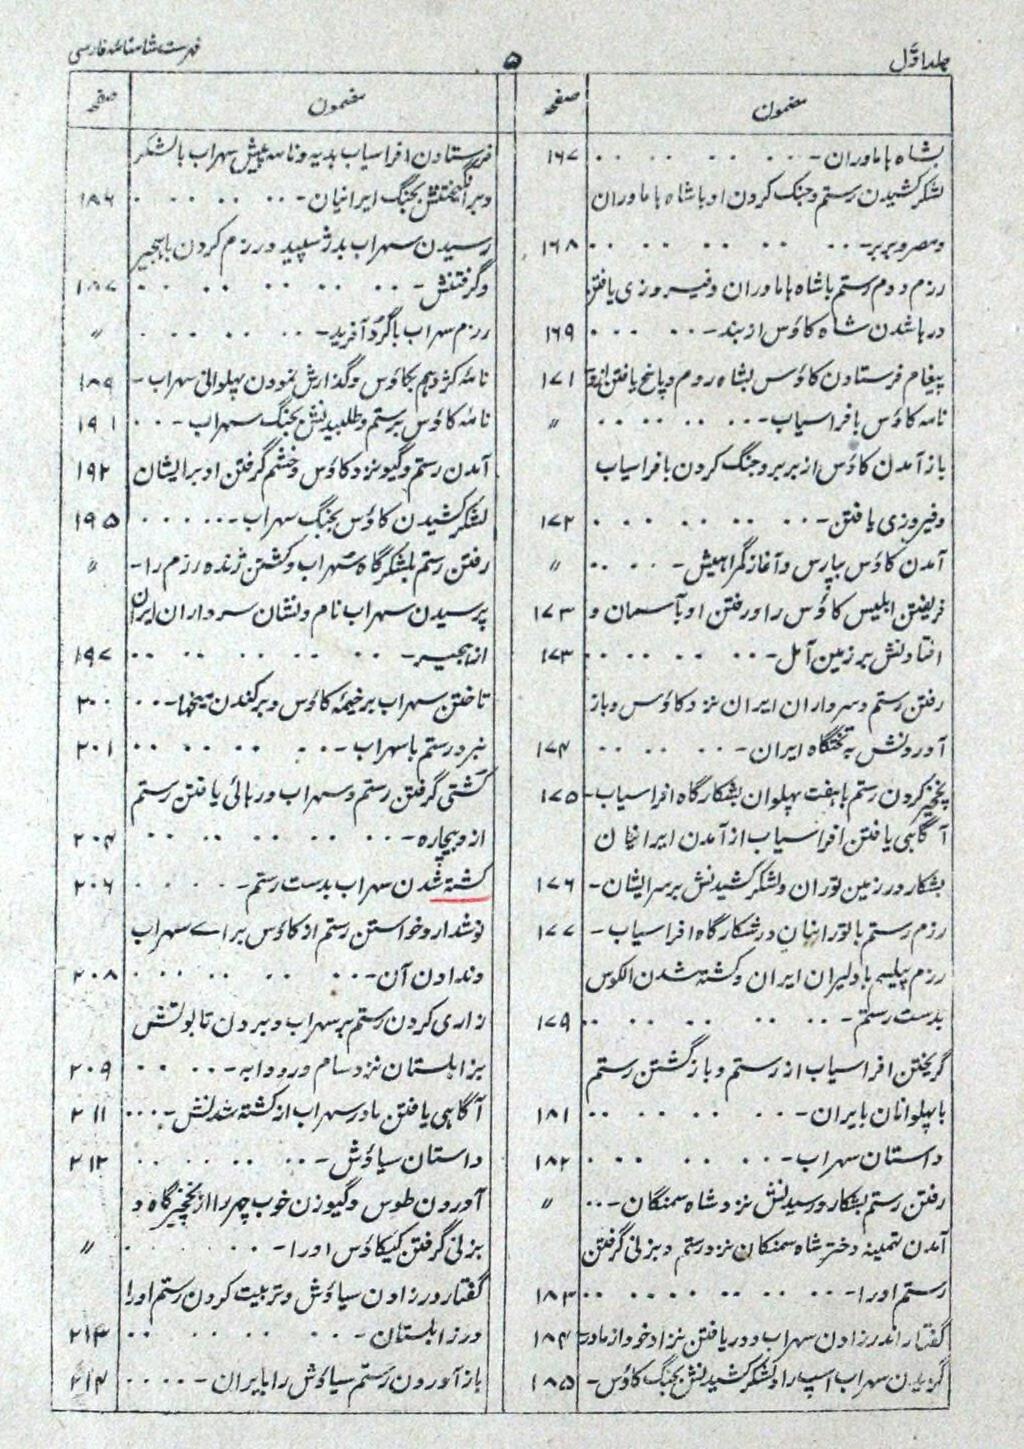 جلد اوّل
۵
فهرست شاهنامهٔ فارسی
مضمون صفحه
بشاه هاماوران - ۱۶۷
لشکر کشیدن رستم و جنگ کردن او با شاه هاماوران
و مصر و بربر - ۱۶۸
رزم دوم رستم با شاه هاماوران و فیروزی یافتن
و رها شدن شاه کاؤس از بند - ۱۶۹
پیغام فرستادن کاؤس بشاه روم و پاسخ یافتن ازو ۱۷۱
نامه کاؤس بافراسیاب - 〃
باز آمدن کاؤس از بربر و جنگ کردن با فراسیاب
و فیروزی یافتن - ۱۷۲
آمدن کاؤس بپارس و آغاز گمراهیش - 〃
فریفتن ابلیس کاؤس را و رفتن او بآسمان و ۱۷۳
افتادنش بر زمین آمل - ۱۷۳
رفتن رستم و سرداران ایران نزد کاؤس و باز
آوردنش به تختگاه ایران - ۱۷۴
نخچیر کردن رستم با هفت پهلوان بشکارگاه افراسیاب - ۱۷۵
آگاهی یافتن افراسیاب از آمدن ایرانیان
بشکار در زمین توران و لشکر کشیدنش بر سر ایشان - ۱۷۶
رزم رستم با تورانیان در شکارگاه افراسیاب - ۱۷۷
رزم پیلسم با دلیران ایران و کشته شدن الکوس
بدست رستم - ۱۷۹
گریختن افراسیاب از رستم و بازگشتن رستم
با پهلوانان بایران - ۱۸۱
داستان سهراب - ۱۸۲
رفتن رستم بشکار و رسیدنش نزد شاه سمنگان - 〃
آمدن تهمینه دختر شاه سمنگان نزد رستم و بزنی گرفتن
رستم او را - ۱۸۳
گفتار اندر زادن سهراب و دریافتن نژاد خود از مادر - ۱۸۴
گزیدن سهراب اسپ را و لشکر کشیدنش بجنگ کاؤس - ۱۸۵
مضمون صفحه
فرستادن افراسیاب هدیه و نامه پیش سهراب با لشکر
و برانگیختنش بجنگ ایرانیان - ۱۸۶
رسیدن سهراب بدژ سپید و رزم کردن با هجیر
و گرفتنش - ۱۸۷
رزم سهراب با گردآفرید - 〃
نامهٔ کژدهم بکاؤس و گذارش نمودن پهلوانی سهراب - ۱۸۹
نامهٔ کاؤس برستم و طلبیدنش بجنگ سهراب - ۱۹۱
آمدن رستم و گیو نزد کاؤس و خشم گرفتن او بر ایشان ۱۹۲
لشکر کشیدن کاؤس بجنگ سهراب - ۱۹۵
رفتن رستم بلشکرگاه سهراب و کشتن ژنده رزم را - 〃
پرسیدن سهراب نام و نشان سرداران ایران
از هجیر - ۱۹۷
تاختن سهراب بر خیمهٔ کاؤس و برکندن میخها - ۲۰۰
نبرد رستم با سهراب - ۲۰۱
کشتی گرفتن رستم و سهراب و رهائی یافتن رستم
از و بچاره - ۲۰۴
کشته شدن سهراب بدست رستم - ۲۰۶
نوشدارو خواستن رستم از کاؤس برای سهراب
و ندادن آن - ۲۰۸
زاری کردن رستم بر سهراب و بردن تابوتش
بزابلستان نزد سام و رودابه - ۲۰۹
آگاهی یافتن مادر سهراب از کشته شدنش - ۲۱۱
داستان سیاؤش - ۲۱۲
آوردن طوس و گیو زن خوب چهر را از نخچیرگاه و
بزنی گرفتن کیکاؤس او را - 〃
گفتار در زادن سیاؤش و تربیت کردن رستم او را
در زابلستان - ۲۱۳
باز آوردن رستم سیاؤش را بایران - ۲۱۴